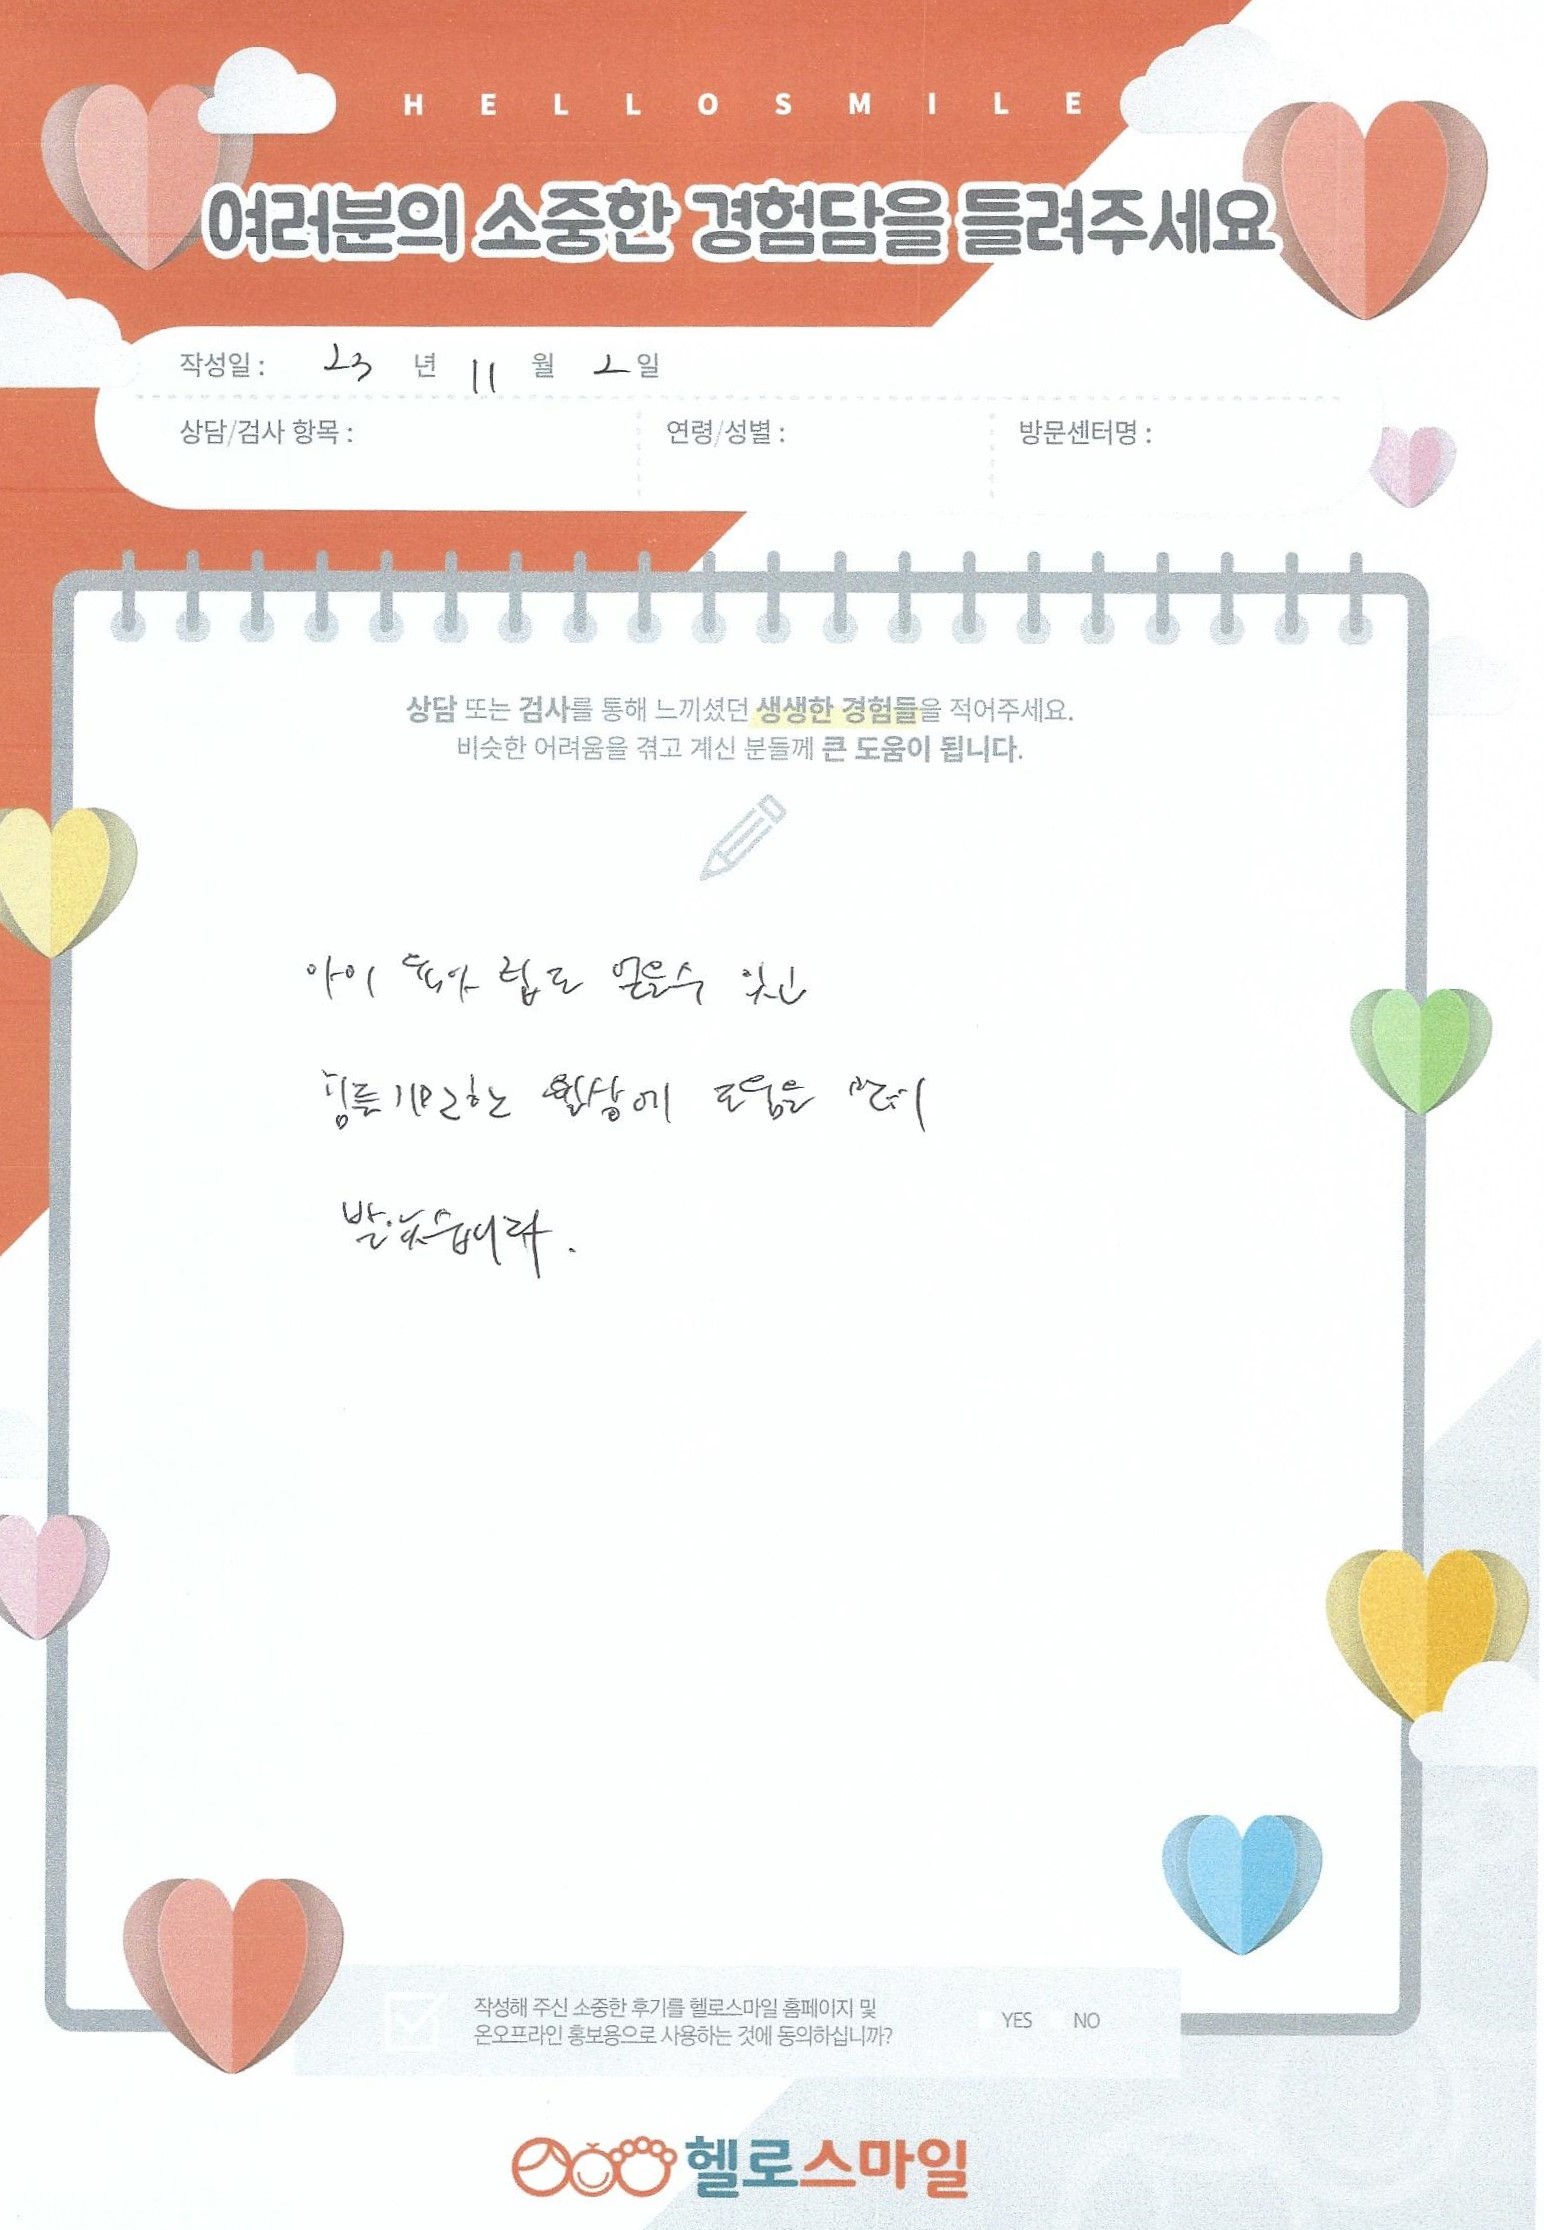 HELLOSMILE
여러분의 소중한 경험담을 들려주세요
작성일 : 23 년 11 월 2 일
상담/검사 항목 : 연령/성별 : 방문센터명 :
상담 또는 검사를 통해 느끼셨던 생생한 경험들을 적어주세요.
비슷한 어려움을 겪고 계신 분들께 큰 도움이 됩니다.
아이 육아 팁도 얻을수 있고
도움을 많이
받았습니다.
작성해 주신 소중한 후기를 헬로스마일 홈페이지 및
온오프라인 홍보용으로 사용하는 것에 동의하십니까? YES NO
헬로스마일